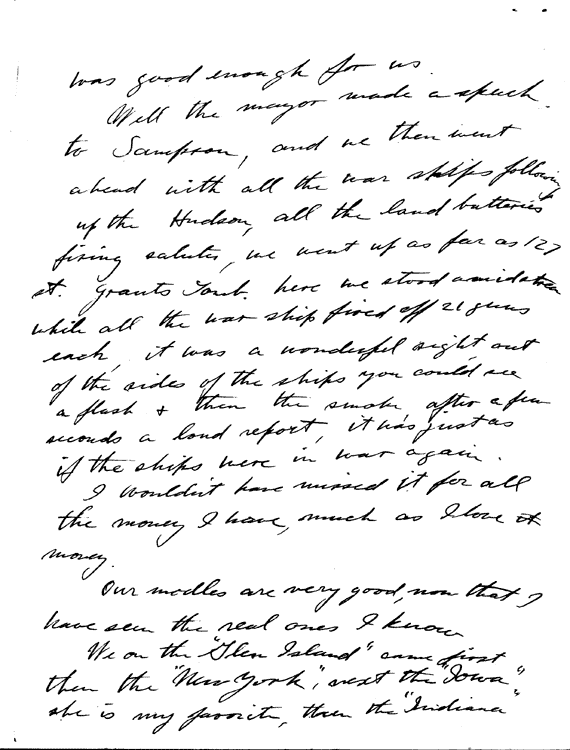 was good enough for us.
Well the mayor made a speech
to Sampson, and we then went
ahead with all the war ships following
up the Hudson, all the land batteries
firing salutes, we went up as far as 127
st. Grants Tomb. here we stood amidstream
while all the war ship fired off 21 guns
each, it was a wonderful sight, out
of the sides of the ships you could see
a flash & then the smoke, after a few
seconds a loud report, it was just as
if the ships were in war again.
I wouldn't have missed it for all
the money I have, much as I love it
money.
Our modles are very good, now that I
have seen the real ones I know
We on the "Glen Island" came first
then the "New York", next the "Iowa"
she is my favorite, then the "Indiana"